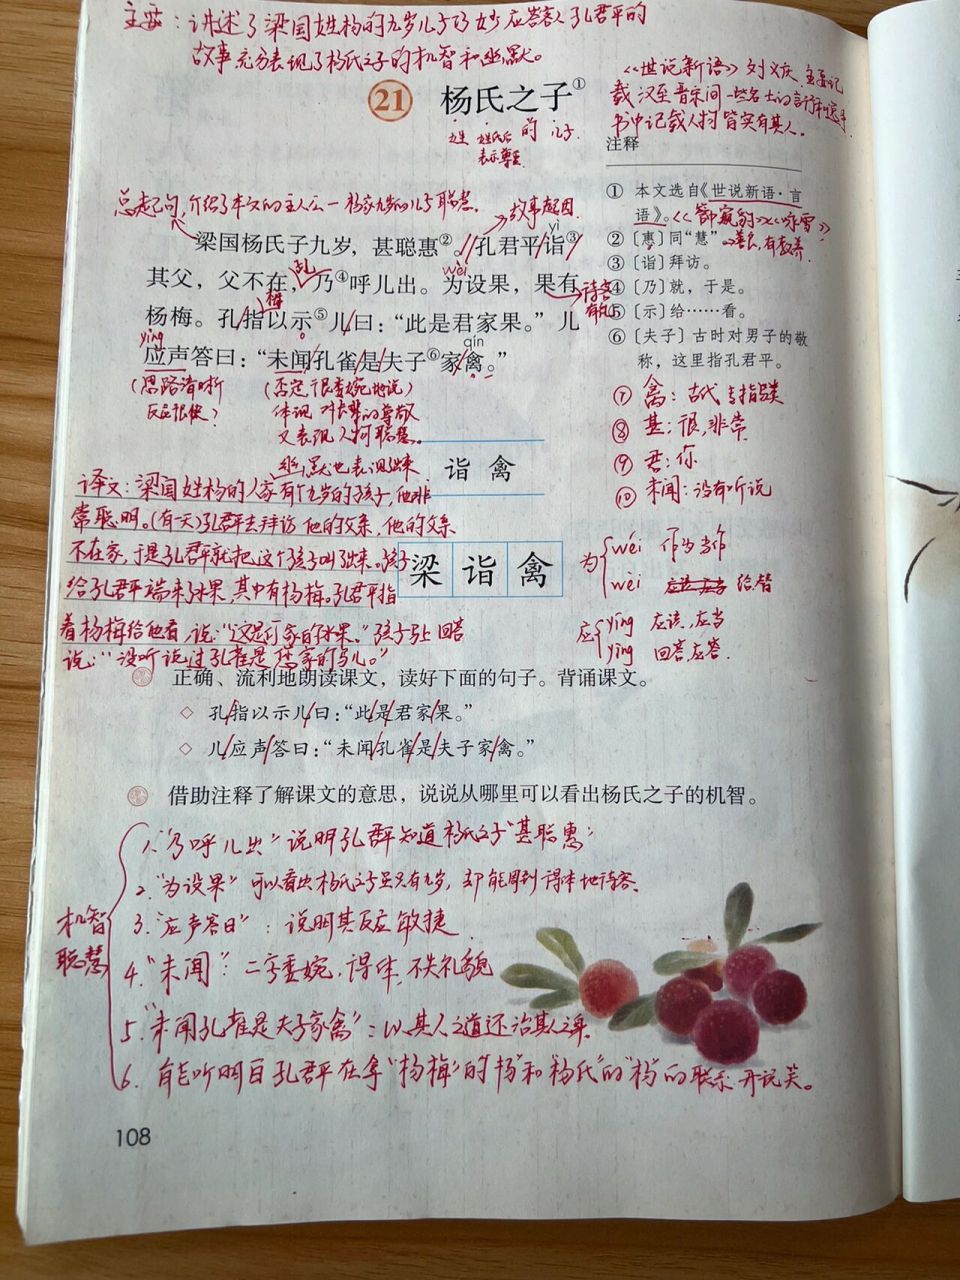 主要：讲述了梁国姓杨的九岁儿子巧妙应答客人孔君平的
故事充分表现了杨氏之子的机智和幽默。
21 杨氏之子①
姓 姓氏后 的 儿子
表示尊重
《世说新语》刘义庆 主要记
载汉至晋宋间一些名士的言行和
书中记载人物皆实有其人.
注释
总起句,介绍了本文的主人公一杨家九岁的儿子聪慧.
故事起因
yì
梁国杨氏子九岁，甚聪惠②。孔君平诣③
孔 wèi
其父，父不在，乃④呼儿出。为设果，果有
梅 待客
有礼
杨梅。孔指以示⑤儿曰：“此是君家果。”儿
yìng qín
应声答曰：“未闻孔雀是夫子⑥家禽。”
(思路清晰
反应很快)
(否定 很委婉地说)
体现 对长辈的尊敬
又表现人物聪慧。
幽默也表现出来
① 本文选自《世说新语·言
语》。《咏雪》
② 〔惠〕同“慧”。善良,有教养
③ 〔诣〕拜访。
④ 〔乃〕就，于是。
⑤ 〔示〕给……看。
⑥ 〔夫子〕古时对男子的敬
称，这里指孔君平。
⑦ 禽：古代专指鸟类
⑧ 甚：很,非常
⑨ 君：你
⑩ 未闻：没有听说
诣 禽
梁 诣 禽
为 wéi 作为 当作
wèi 给.替
应 yīng 应该,应当
yìng 回答,应答.
译文：梁国姓杨的人家有个九岁的孩子,他非
常聪明。(有一天)孔君平去拜访他的父亲,他的父亲
不在家,于是孔君平就把这个孩子叫出来。孩子
给孔君平端来水果,其中有杨梅。孔君平指
着杨梅给他看,说：“这是你家的水果。”孩子马上回答
说：“没听说过孔雀是您家的鸟儿。”
正确、流利地朗读课文，读好下面的句子。背诵课文。
◇ 孔/指以示儿/曰：“此/是/君家/果。”
◇ 儿/应声/答曰：“未闻/孔雀/是/夫子家/禽。”
借助注释了解课文的意思，说说从哪里可以看出杨氏之子的机智。
机智
聪慧
1.“乃呼儿出”说明孔君平知道杨氏之子“甚聪惠”
2.“为设果”可以看出杨氏之子虽只有九岁, 却能周到得体地待客.
3.“应声答曰”：说明其反应敏捷
4.“未闻”：二字委婉,得体,不失礼貌
5.“未闻孔雀是夫子家禽”：以其人之道还治其人之身
6. 能听明白孔君平在拿“杨梅”的“杨”和“杨氏”的“杨”的联系开玩笑。
108